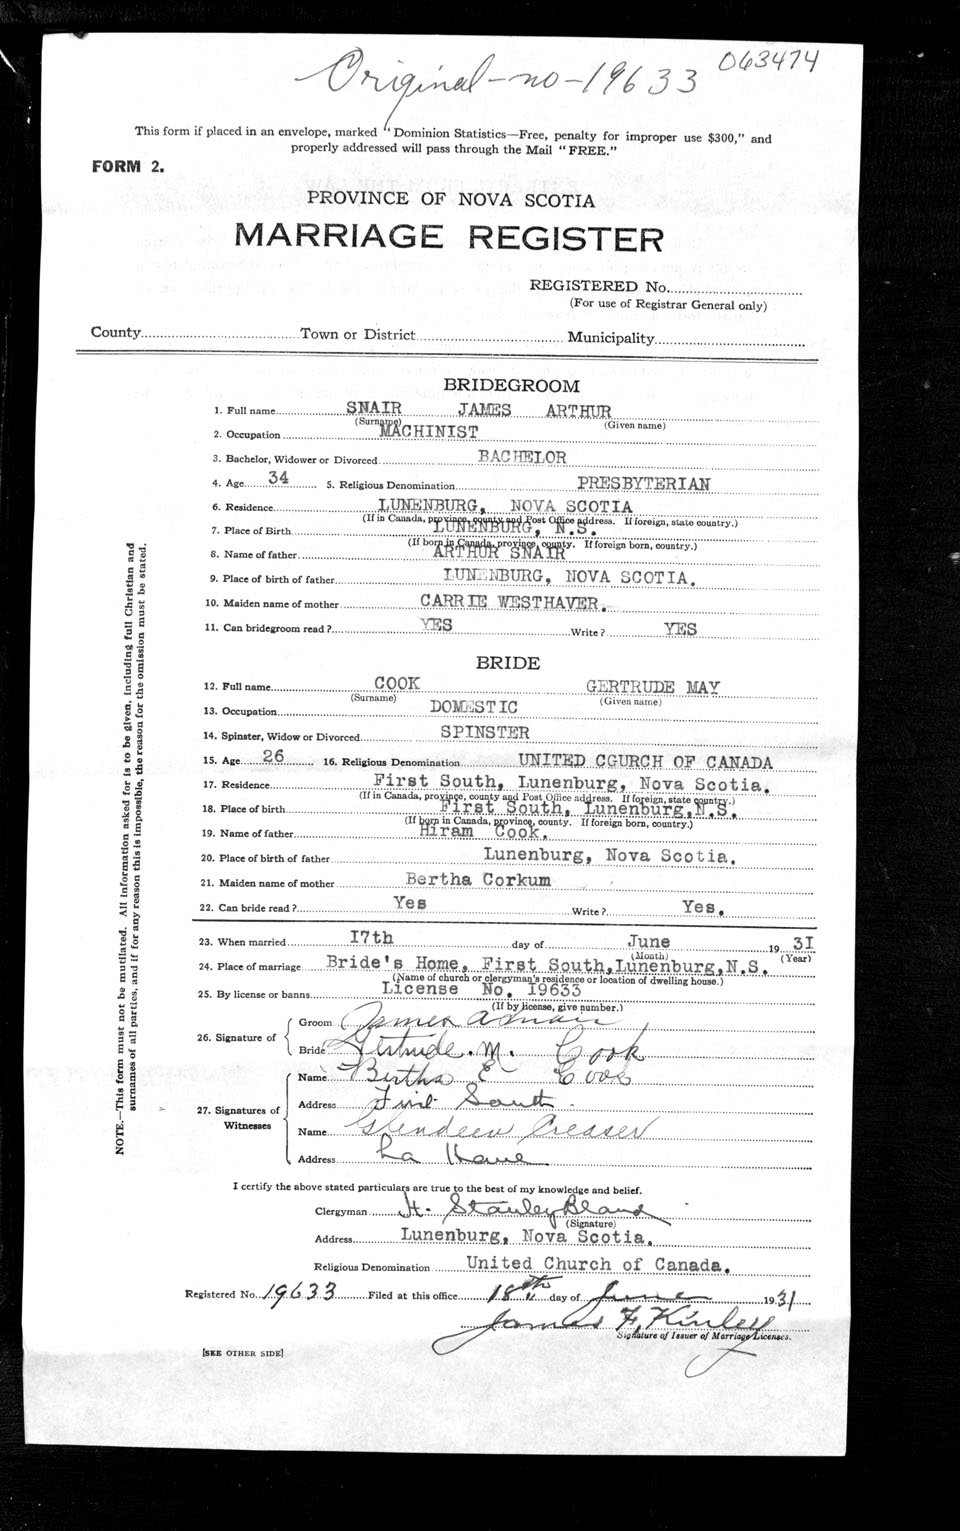 Original-no-19633 063474
This form if placed in an envelope, marked "Dominion Statistics—Free, penalty for improper use $300," and
properly addressed will pass through the Mail "FREE."
FORM 2.
PROVINCE OF NOVA SCOTIA
MARRIAGE REGISTER
REGISTERED No.
(For use of Registrar General only)
County Town or District Municipality
BRIDEGROOM
1. Full name SNAIR JAMES ARTHUR
(Surname) (Given name)
2. Occupation MACHINIST
3. Bachelor, Widower or Divorced BACHELOR
4. Age 34 5. Religious Denomination PRESBYTERIAN
6. Residence LUNENBURG, NOVA SCOTIA
(If in Canada, province, county and Post Office address. If foreign, state country.)
7. Place of Birth LUNENBURG, N.S.
(If born in Canada, province, county. If foreign born, country.)
8. Name of father ARTHUR SNAIR
9. Place of birth of father LUNENBURG, NOVA SCOTIA.
10. Maiden name of mother CARRIE WESTHAVER.
11. Can bridegroom read? YES Write? YES
BRIDE
12. Full name COOK GERTRUDE MAY
(Surname) (Given name)
13. Occupation DOMESTIC
14. Spinster, Widow or Divorced SPINSTER
15. Age 26 16. Religious Denomination UNITED CGURCH OF CANADA
17. Residence First South, Lunenburg, Nova Scotia.
(If in Canada, province, county and Post Office address. If foreign, state country.)
18. Place of birth First South, Lunenburg,N.S.
(If born in Canada, province, county. If foreign born, country.)
19. Name of father Hiram Cook.
20. Place of birth of father Lunenburg, Nova Scotia.
21. Maiden name of mother Bertha Corkum
22. Can bride read? Yes Write? Yes.
23. When married I7th day of June 19 3I
(Month) (Year)
24. Place of marriage Bride's Home, First South,Lunenburg,N.S.
(Name of church or clergyman's residence or location of dwelling house.)
25. By license or banns License No. I9633
(If by license, give number.)
26. Signature of
Groom James A Snair
Bride Gertrude. M. Cook
27. Signatures of Witnesses
Name Bertha E Cook
Address First South.
Name Glendeen Creaser
Address La Have
I certify the above stated particulars are true to the best of my knowledge and belief.
Clergyman H. Stanley Bland
(Signature)
Address Lunenburg, Nova Scotia.
Religious Denomination United Church of Canada.
Registered No. 19633 Filed at this office 18th day of June 1931
James F. Kinley
Signature of Issuer of Marriage Licenses.
[SEE OTHER SIDE]
NOTE.—This form must not be mutilated. All information asked for is to be given, including full Christian and
surnames of all parties, and if for any reason this is impossible, the reason for the omission must be stated.